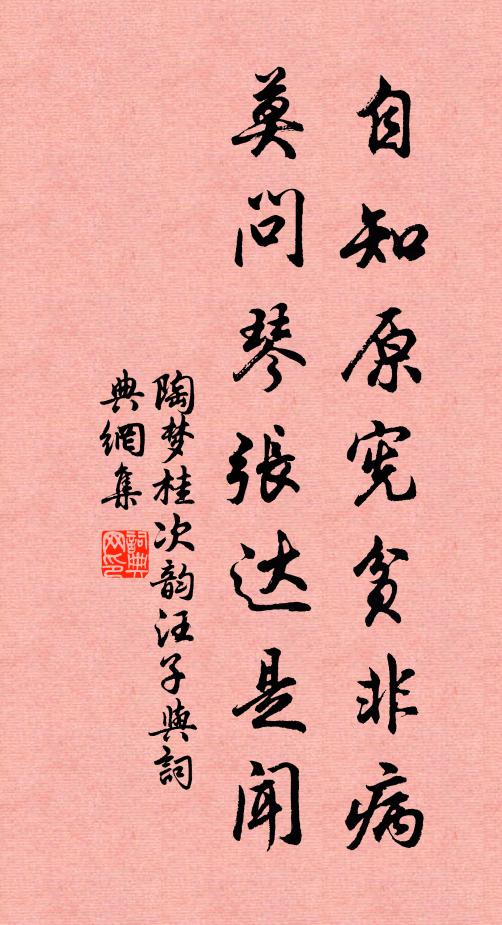 自知原宪贫非病
莫问琴張达是闻
陶梦桂次韵汪子與詞
典網集
詞典网印